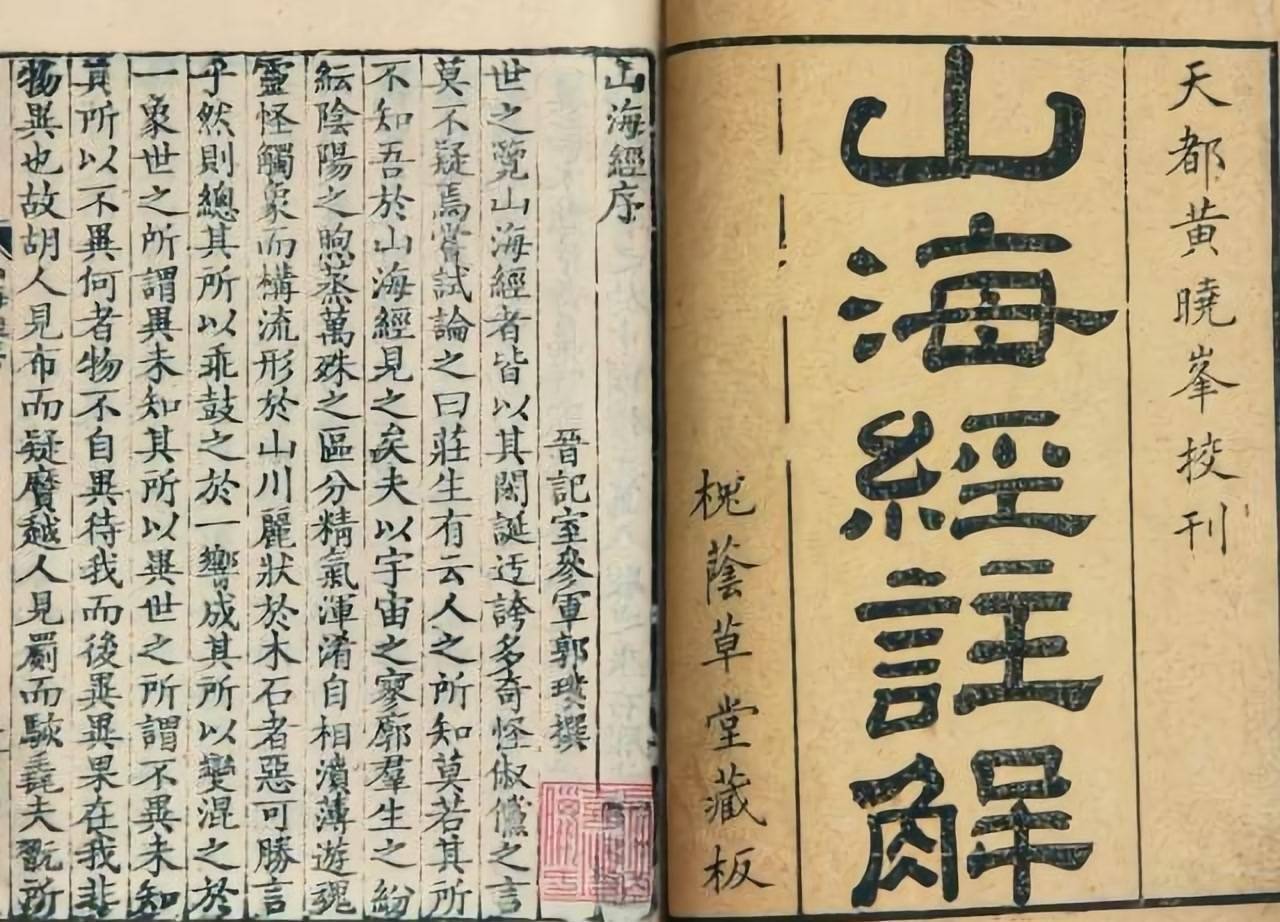 天都黄曉峯挍刊
山海經註解
槐蔭草堂藏板
山海經序
晉記室參軍郭璞撰
世之覽山海經者皆以其閎誕迃誇多奇怪俶儻之言
莫不疑焉嘗試論之曰莊生有云人之所知莫若其所
不知吾於山海經見之矣夫以宇宙之寥廓羣生之紛
紜陰陽之煦蒸萬殊之區分精氣渾淆自相濆薄遊魂
靈怪觸象而構流形於山川麗狀於木石者惡可勝言
乎然則總其所以乖鼓之於一響成其所以變混之於
一象世之所謂異未知其所以異世之所謂不異未知
其所以不異何者物不自異待我而後異異果在我非
物異也故胡人見布而疑黂越人見罽而駭毳夫翫所